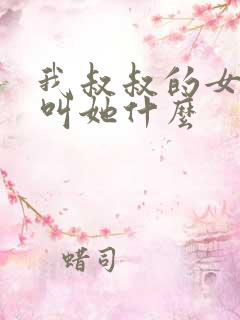 我叔叔的女
叫她什麼
蜡司